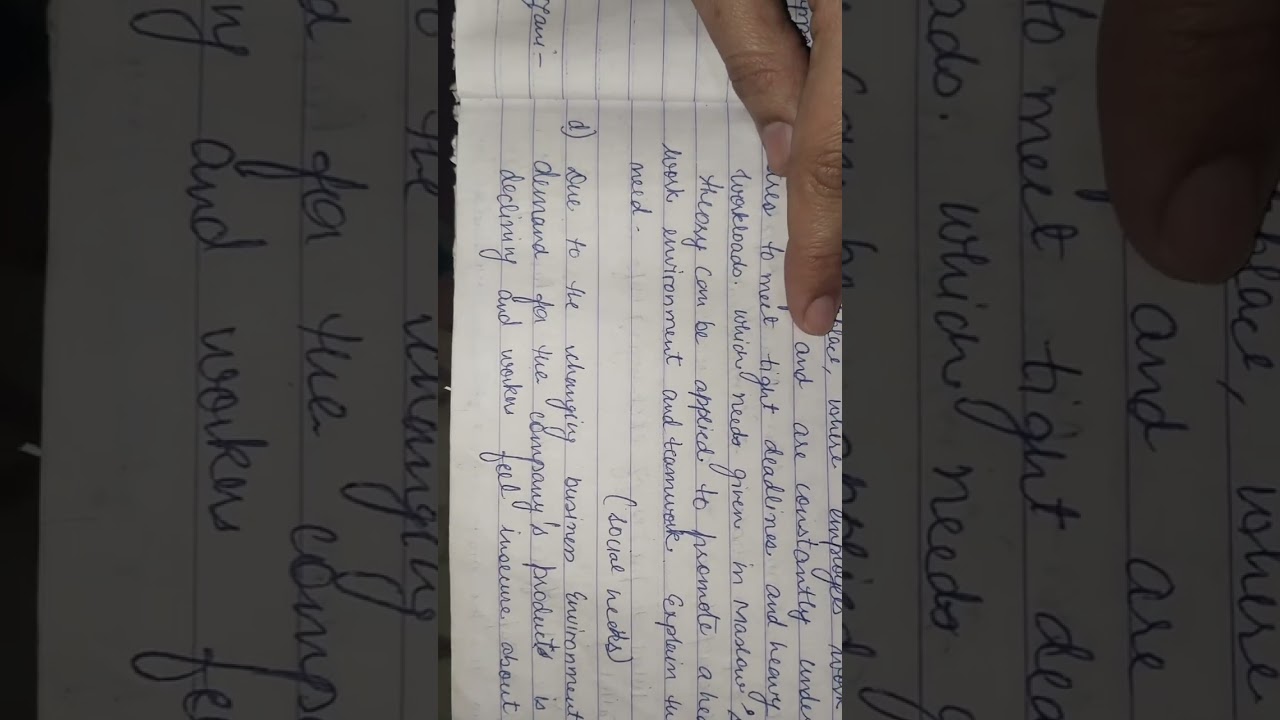 place, where employees work
and are constantly under
to meet tight deadlines and heavy
workloads. which needs given in Maslow's
theory can be applied to promote a
work environment and teamwork. Explain
need.
(social needs)
d) Due to the changing business environment
demand for the company's products is
declining and workers feel insecure about